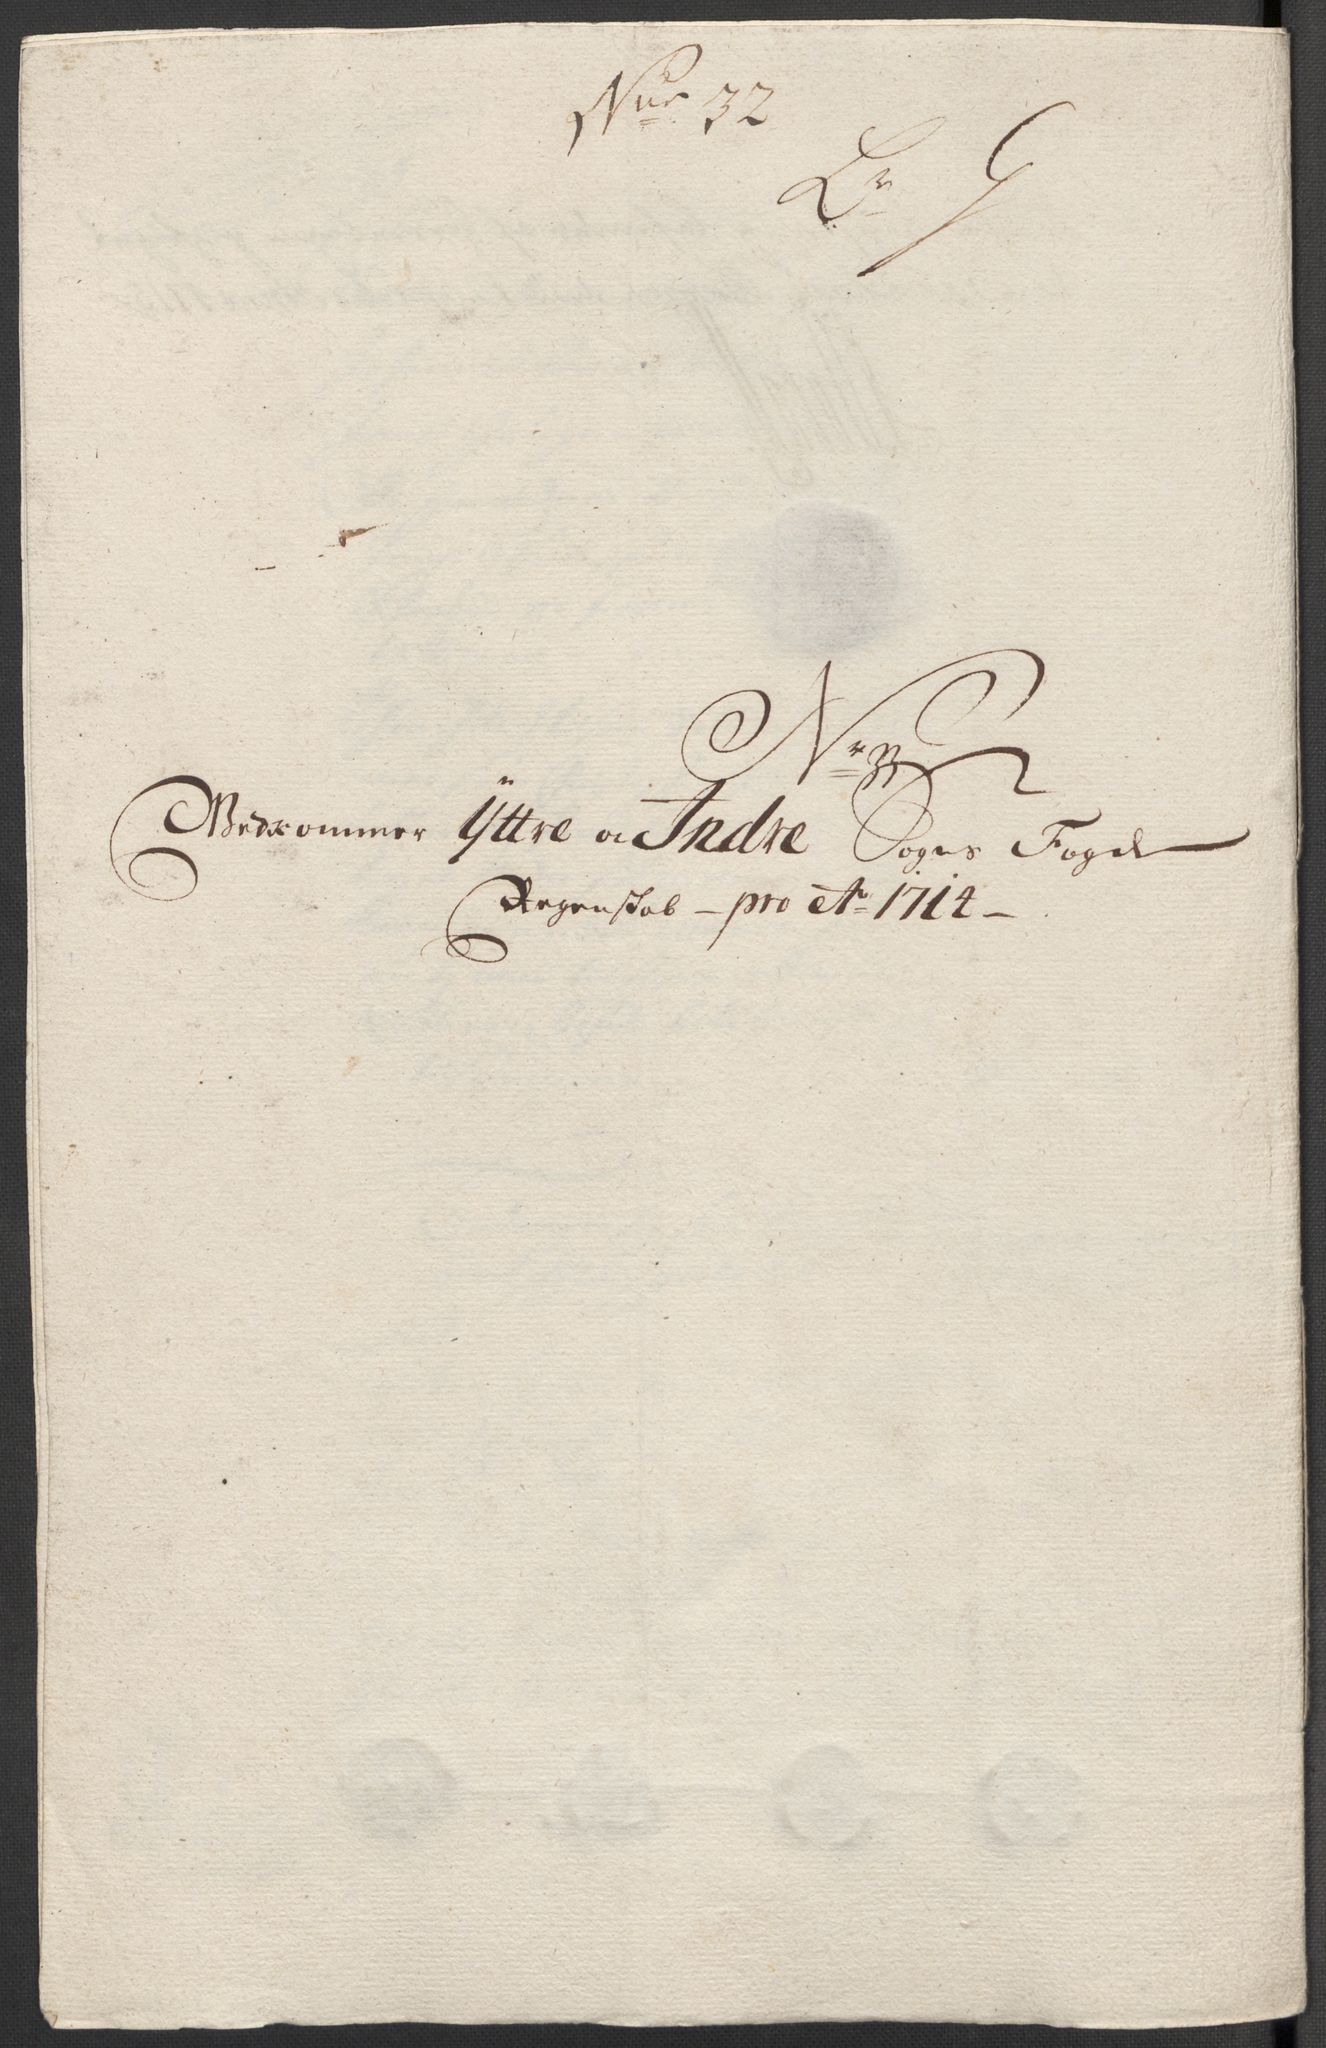 No 32
Lr G
Nr 33
Vedkommer Ÿttre oc Indre Sogns Fogd
Regenskab - pro Ao 1714 -